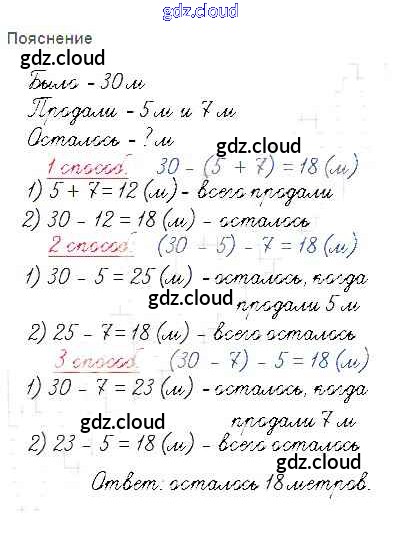 gdz.cloud
Пояснение
gdz.cloud
Было - 30 м
Продали - 5 м и 7 м
Осталось - ? м
gdz.cloud
1 способ: 30 - (5 + 7) = 18 (м)
1) 5 + 7 = 12 (м) - всего продали
2) 30 - 12 = 18 (м) - осталось
2 способ: (30 - 5) - 7 = 18 (м)
gdz.cloud
1) 30 - 5 = 25 (м) - осталось, когда
gdz.cloud
продали 5 м
2) 25 - 7 = 18 (м) - всего осталось
gdz.cloud
3 способ: (30 - 7) - 5 = 18 (м)
1) 30 - 7 = 23 (м) - осталось, когда
gdz.cloud
продали 7 м
2) 23 - 5 = 18 (м) - всего осталось
gdz.cloud
Ответ: осталось 18 метров.